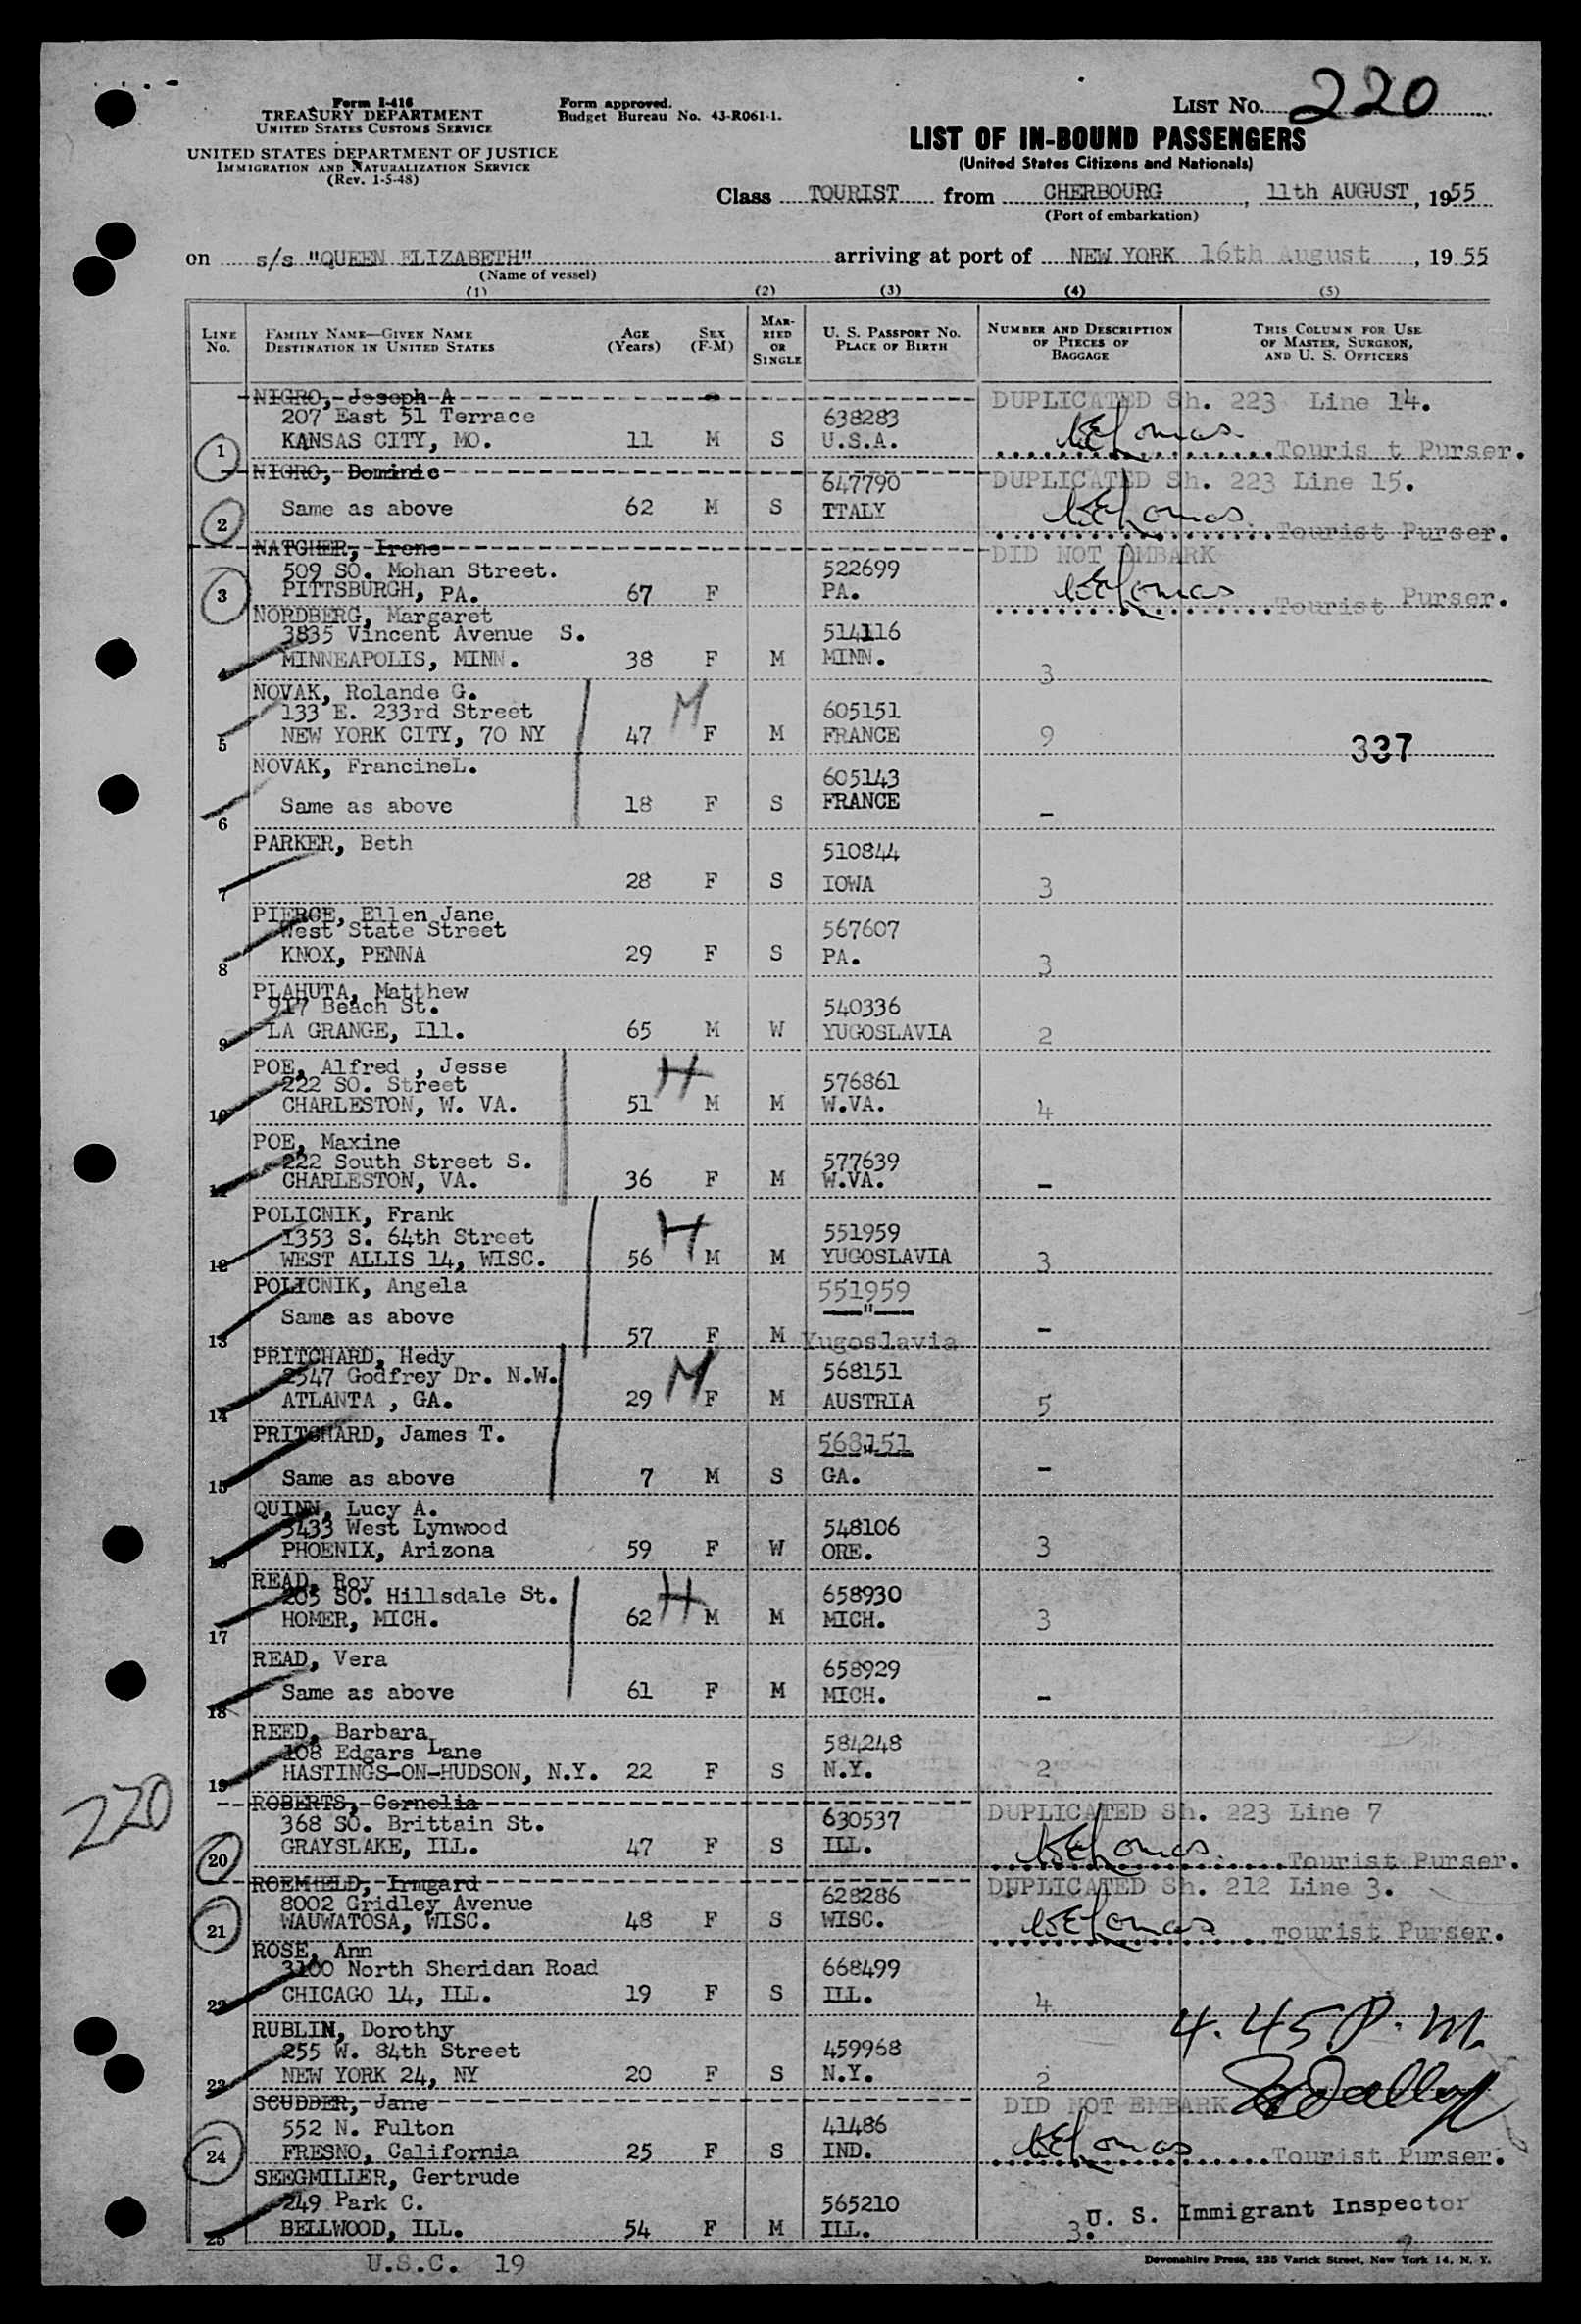 Form I-416
TREASURY DEPARTMENT
UNITED STATES CUSTOMS SERVICE
UNITED STATES DEPARTMENT OF JUSTICE
IMMIGRATION AND NATURALIZATION SERVICE
(Rev. 1-5-48)
Form approved.
Budget Bureau No. 43-R061-1.
LIST NO. 220
LIST OF IN-BOUND PASSENGERS
(United States Citizens and Nationals)
Class TOURIST from CHERBOURG, 11th AUGUST, 1955
(Port of embarkation)
on s/s "QUEEN ELIZABETH" arriving at port of NEW YORK 16th August, 1955
(Name of vessel)
(1) (2) (3) (4) (5)
LINE NO. FAMILY NAME—GIVEN NAME DESTINATION IN UNITED STATES AGE (Years) SEX (F-M) MARRIED OR SINGLE U. S. PASSPORT NO. PLACE OF BIRTH NUMBER AND DESCRIPTION OF PIECES OF BAGGAGE THIS COLUMN FOR USE OF MASTER, SURGEON, AND U. S. OFFICERS
NIGRO, Joseph A DUPLICATED Sh. 223 Line 14.
207 East 51 Terrace 638283
1 KANSAS CITY, MO. 11 M S U.S.A. Touris t Purser.
NIGRO, Dominic 647790 DUPLICATED Sh. 223 Line 15.
2 Same as above 62 M S ITALY Tourist Purser.
NATCHER, Irene DID NOT EMBARK
509 SO. Mohan Street. 522699
3 PITTSBURGH, PA. 67 F PA. Tourist Purser.
NORDBERG, Margaret
3835 Vincent Avenue S. 514116
4 MINNEAPOLIS, MINN. 38 F M MINN. 3
NOVAK, Rolande G. M
133 E. 233rd Street 605151
5 NEW YORK CITY, 70 NY 47 F M FRANCE 9 337
NOVAK, FrancineL. 605143
6 Same as above 18 F S FRANCE -
PARKER, Beth 510844
7 28 F S IOWA 3
PIERCE, Ellen Jane
West State Street 567607
8 KNOX, PENNA 29 F S PA. 3
PLAHUTA, Matthew
917 Beach St. 540336
9 LA GRANGE, Ill. 65 M W YUGOSLAVIA 2
POE, Alfred , Jesse H
222 SO. Street 576861
10 CHARLESTON, W. VA. 51 M M W.VA. 4
POE, Maxine
222 South Street S. 577639
11 CHARLESTON, VA. 36 F M W.VA. -
POLICNIK, Frank H
1353 S. 64th Street 551959
12 WEST ALLIS 14, WISC. 56 M M YUGOSLAVIA 3
POLICNIK, Angela 551959
Same as above "
13 57 F M Yugoslavia -
PRITCHARD, Hedy M
2547 Godfrey Dr. N.W. 568151
14 ATLANTA , GA. 29 F M AUSTRIA 5
PRITCHARD, James T. 568151 "
15 Same as above 7 M S GA. -
QUINN, Lucy A.
5433 West Lynwood 548106
16 PHOENIX, Arizona 59 F W ORE. 3
READ, Roy H
205 SO. Hillsdale St. 658930
17 HOMER, MICH. 62 M M MICH. 3
READ, Vera 658929
18 Same as above 61 F M MICH. -
REED, Barbara
108 Edgars Lane 584248
19 HASTINGS-ON-HUDSON, N.Y. 22 F S N.Y. 2
220
ROBERTS, Cornelia DUPLICATED Sh. 223 Line 7
368 SO. Brittain St. 630537
20 GRAYSLAKE, ILL. 47 F S ILL. Tourist Purser.
ROEMHELD, Irmgard DUPLICATED Sh. 212 Line 3.
8002 Gridley Avenue 628286
21 WAUWATOSA, WISC. 48 F S WISC. Tourist Purser.
ROSE, Ann
3100 North Sheridan Road 668499
22 CHICAGO 14, ILL. 19 F S ILL. 4
RUBLIN, Dorothy 4.45 P.M.
255 W. 84th Street 459968
23 NEW YORK 24, NY 20 F S N.Y. 2
SCUDDER, Jane DID NOT EMBARK
552 N. Fulton 41486
24 FRESNO, California 25 F S IND. Tourist Purser.
SEEGMILLER, Gertrude
249 Park C. 565210 U. S. Immigrant Inspector
25 BELLWOOD, ILL. 54 F M ILL. 3.
U.S.C. 19
Devonshire Press, 225 Varick Street, New York 14, N. Y.